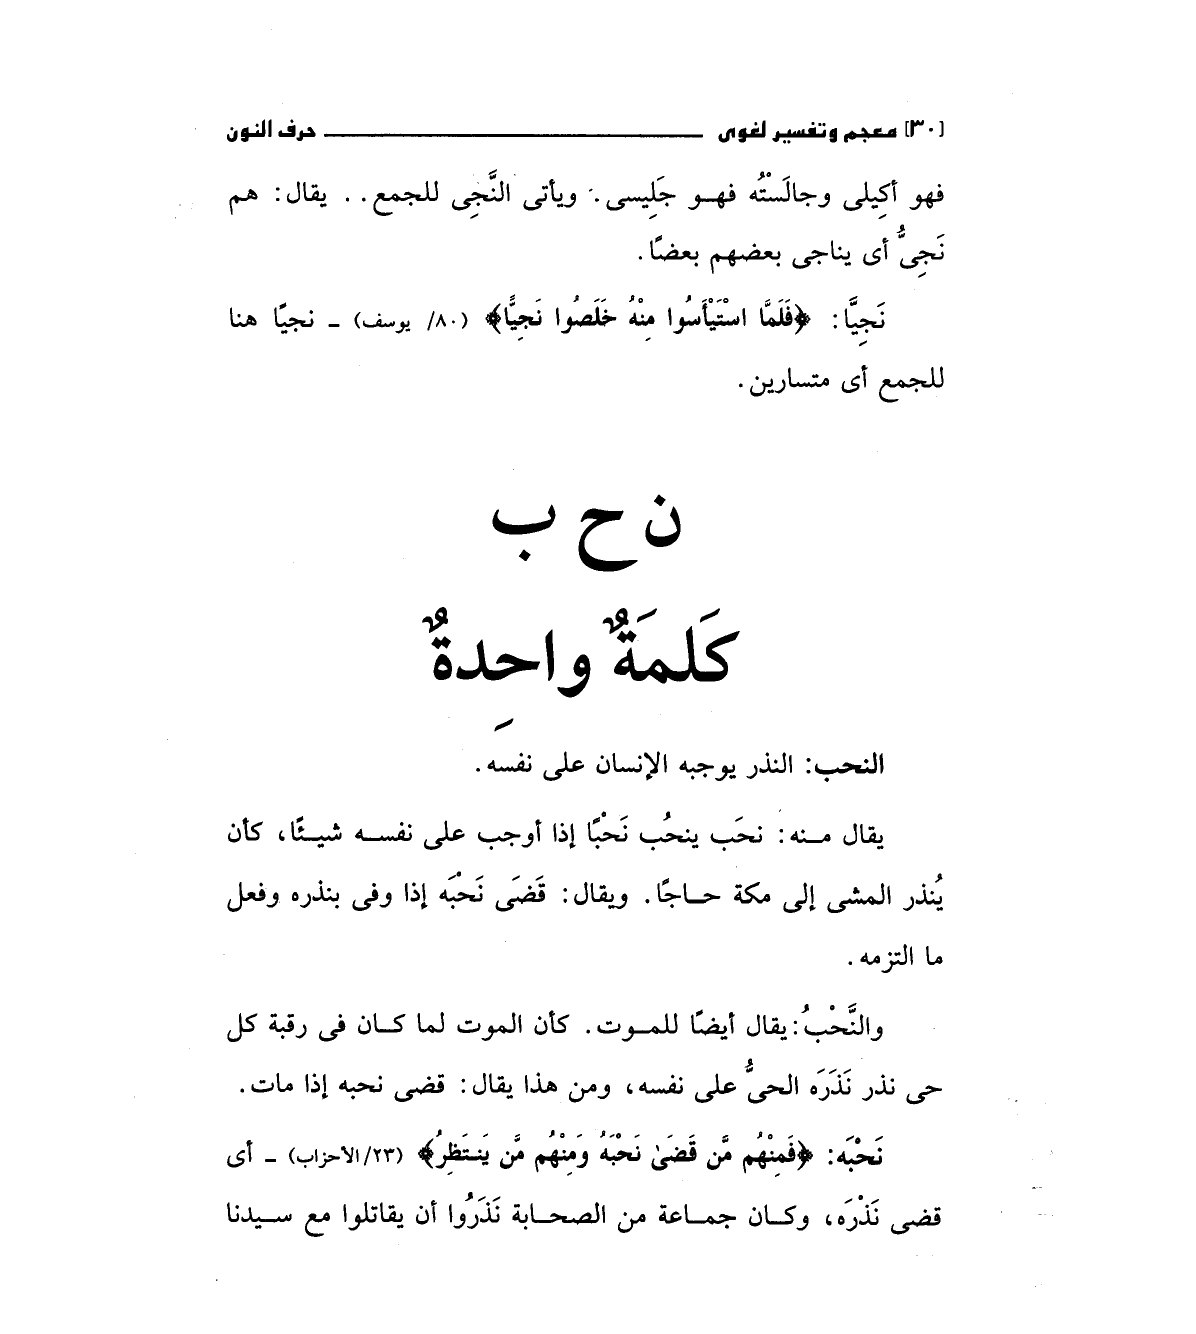 [٣٠] معجم وتفسير لغوى ــــــ حرف النون
فهو أكِيلى وجالَسْتُه فهـو جَلِيسى. ويأتى النَّجِى للجمع . . يقال: هم
نَجِىُّ أى يناجى بعضهم بعضًا.
نَجِيًّا: ﴿فَلَمَّا اسْتَيْأَسُوا مِنْهُ خَلَصُوا نَجِيًّا﴾ (٨٠/ يوسف) ـ نجيًا هنا
للجمع أى متسارين.
ن ح ب
كَلمَةٌ واحِدةٌ
النحب: النذر يوجبه الإنسان على نفسه.
يقال منـه: نحَب ينحُب نَحْبًا إذا أوجب على نفسـه شيـئًا، كأن
يُنذر المشى إلى مكة حـاجًا. ويقال: قَضَى نَحْبَه إذا وفى بنذره وفعل
ما التزمه.
والنَّحْبُ: يقال أيضًا للمـوت. كأن الموت لما كـان فى رقبة كل
حى نذر نَذَرَه الحىُّ على نفسه، ومن هذا يقال: قضى نحبه إذا مات.
نَحْبَه: ﴿فَمِنْهُم مَّن قَضَىٰ نَحْبَهُ وَمِنْهُم مَّن يَنـتَظِرُ﴾ (٢٣/الأحزاب) ـ أى
قضى نَذْرَه، وكـان جمـاعة من الصحـابة نَذَرُوا أن يقاتلوا مع سـيدنا